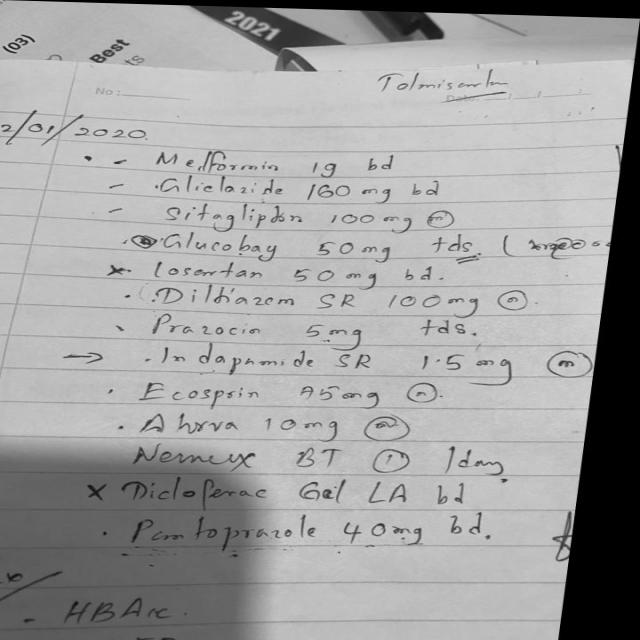 2021
(03)
Best
ts
No:
Telmisartan
Date:
2/01/2020.
- Metformin 1g bd
- Gliclazide 160 mg bd
- Sitagliptin 100 mg (n)
Glucobay 50 mg tds. (
x Losartan 50 mg bd.
. Diltiazem SR 100 mg (n).
Prazocin 5 mg tds.
→ . Indapamide SR 1.5 mg (m)
. Ecosprin 75 mg (n).
. Atorva 10 mg (n)
BT (1) 1 day
x Diclofenac Gel LA bd
. Pantoprazole 40 mg bd.
- HBA1c.